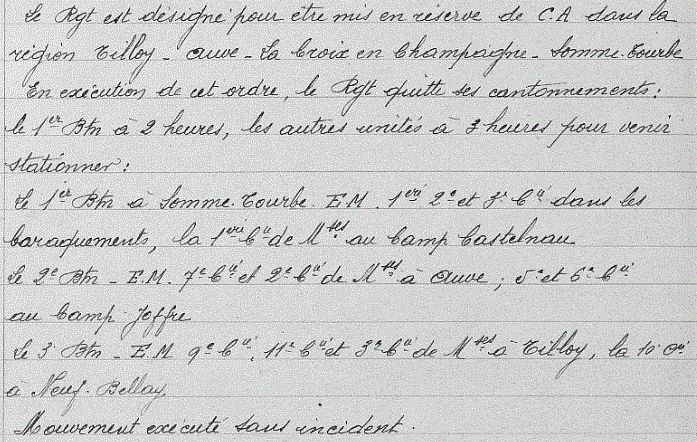 Le Rgt est désigné pour être mis en réserve de C.A dans la
région Tilloy - Auve - La Croix en Champagne - Somme-Tourbe
En exécution de cet ordre, le Rgt quitte ses cantonnements :
le 1er Btn à 2 heures, les autres unités à 3 heures pour venir
stationner :
Le 1er Btn à Somme-Tourbe. E.M. 1ère 2e et 3e Cie dans les
baraquements, la 1ère Cie de Mses au Camp Castelnau
Le 2e Btn - E.M. 7e Cie et 2e Cie de Mses à Auve ; 5e et 6e Cie
au Camp Joffre
Le 3e Btn - E.M 9e Cie, 11e Cie et 3e Cie de Mses à Tilloy, la 10e Cie
à Neuf-Bellay.
Mouvement exécuté sans incident.